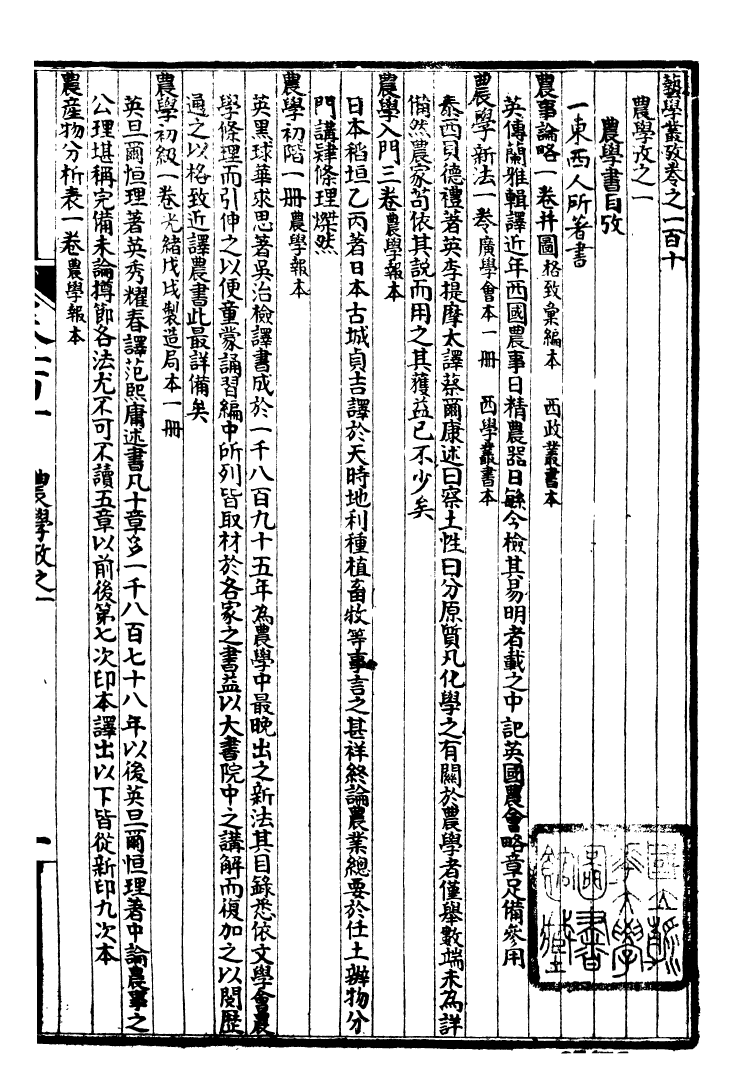 藝學叢攷卷之一百十
農學攷之一
農學書目攷
一東西人所著書
農事論略一卷并圖 格致彙編本 西政叢書本
英傅蘭雅輯譯近年西國農事日精農器日緐今檢其易明者載之中記英國農會略章足備參用
農學新法一卷 廣學會本一冊 西學叢書本
泰西貝德禮著英李提摩太譯蔡爾康述曰察土性曰分原質凡化學之有關於農學者僅舉數端未為詳
備然農家苟依其說而用之其獲益已不少矣
農學入門三卷 農學報本
日本稻垣乙丙著日本古城貞吉譯於天時地利種植畜牧等事言之甚祥終論農業總要於任土辦物分
門講肄條理燦然
農學初階一冊 農學報本
英黑球華求思著吳治檢譯書成於一千八百九十五年為農學中最晚出之新法其目錄悉依文學會農
學條理而引伸之以便童蒙誦習編中所列皆取材於各家之書益以大書院中之講解而復加之以閱歷
通之以格致近譯農書此最詳備矣
農學初級一卷 光緒戊戌製造局本一冊
英旦爾恒理著英秀耀春譯范熙庸述書凡十章多一千八百七十八年以後英旦爾恒理著中論農事之
公理堪稱完備未論撙節各法尤不可不讀五章以前後第七次印本譯出以下皆從新印九次本
農產物分析表一卷 農學報本
農學攷之一
一